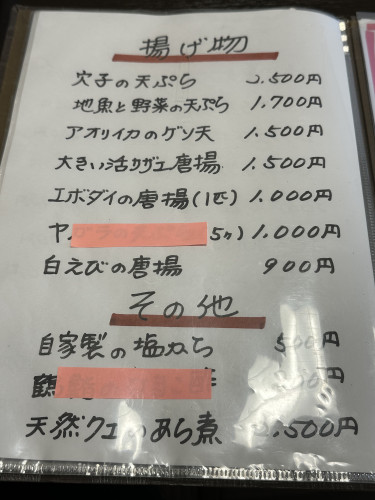 揚げ物
穴子の天ぷら 2.500円
地魚と野菜の天ぷら 1.700円
アオリイカのゲソ天 1.500円
大きい活サザエ唐揚 1.500円
エボダイの唐揚(1匹) 1.000円
ヤ 5ヶ) 1.000円
白えびの唐揚 900円
その他
自家製の塩ねち 500円
天然クエのあら煮 .500円